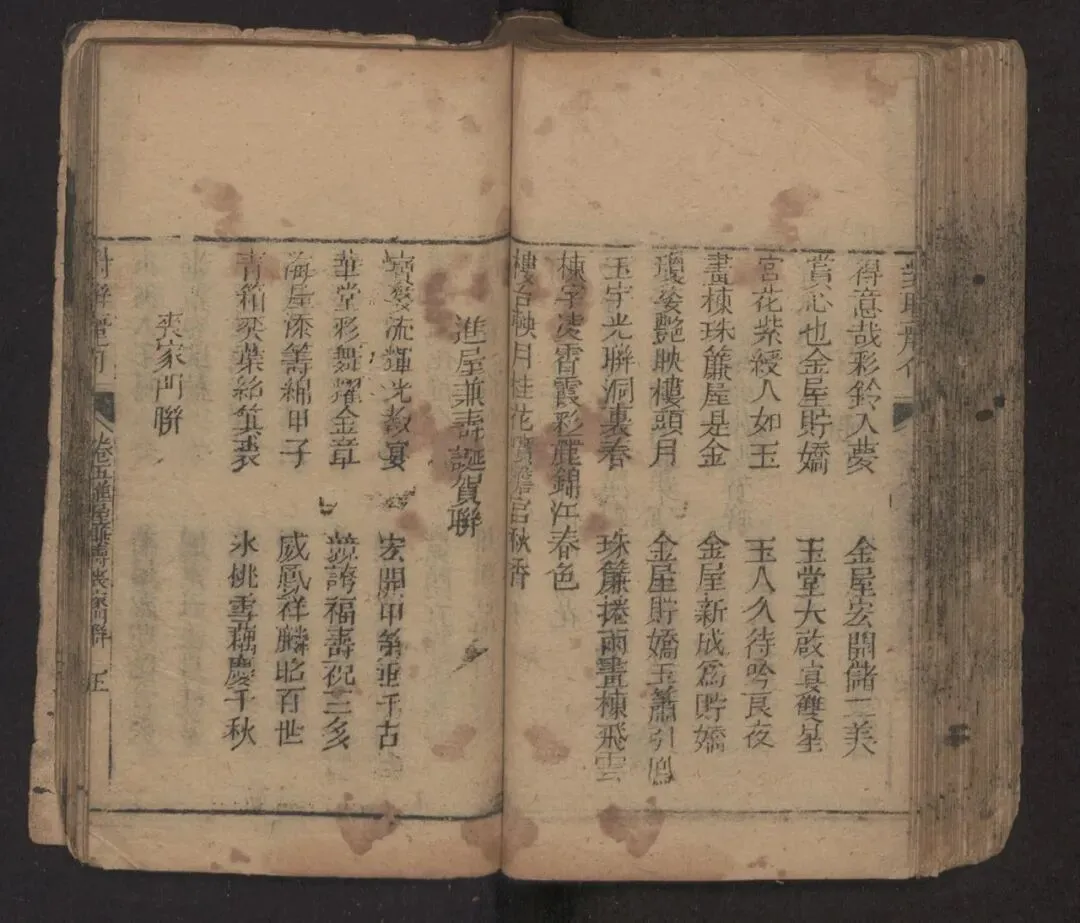 得意哉彩鈴入夢　金屋宏開儲二美
賞心也金屋貯嬌　玉堂大啟宴雙星
宮花紫綬人如玉　玉人久待吟良夜
畫棟珠簾屋是金　金屋新成爲貯嬌
瓊姿艷映樓頭月　金屋貯嬌玉簫引鳳
玉宇光聯洞裏春　珠簾捲雨畫棟飛雲
棟宇凌霄霞彩麗錦江春色
樓台映月桂花賞蟾宮秋香
進屋兼壽誕賀聯
寶婺流輝光敞宴　宏開甲第垂千古
華堂彩舞耀金章　競福壽祝三多
海屋添籌綿甲子　威鳳祥麟昭百世
青箱奕葉紹箕裘　氷桃雪藕慶千秋
喪家門聯
卷五進屋兼壽喪家門聯